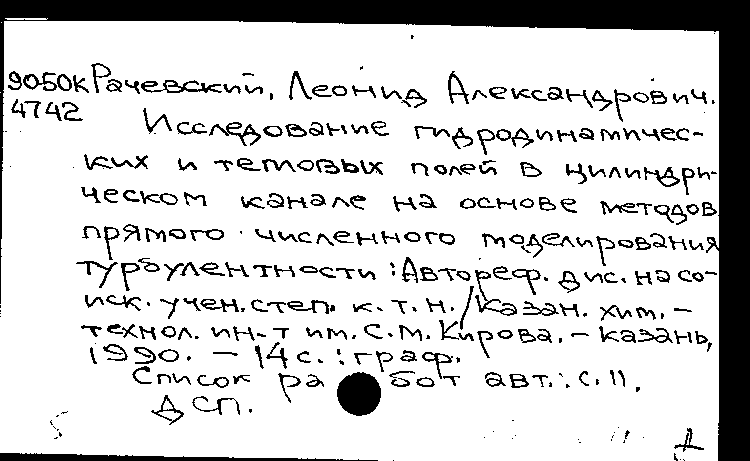 9050К Рачевский, Леонид Александрович.
4742 Исследование гидродинамичес-
ких и темовых полей в цилиндри-
ческом канале на основе методов
прямого численного моделирования
турбулентности : Автореф. дис. на со-
иск. учен. степ. к. т. н. / Казан. хим. -
технол. ин-т им. С. М. Кирова. - Казань,
1990. - 14 с. : граф.
Список работ авт.: с. 11.
ДСП.